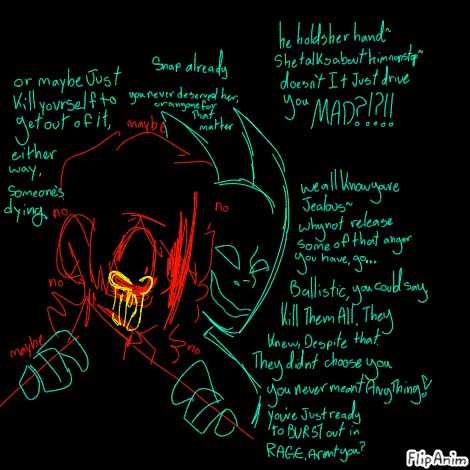 he holds her hand~
She talks about him nonstop~
doesn't It Just drive
you MAD?!?!!
Snap already
you never deserved her,
or anyone for
That
matter
or maybe Just
Kill yourself to
get out of it,
either
way,
someone's
dying
maybe
no
no
no
maybe
no
we all Know you're
Jealous~
why not release
some of that anger
you have, go...
Ballistic, you could say
Kill Them All, They
Knew, Despite that
They didnt choose you
you never meant Anything!
you're Just ready
to BURST out in
RAGE, Arent you?
FlipAnim